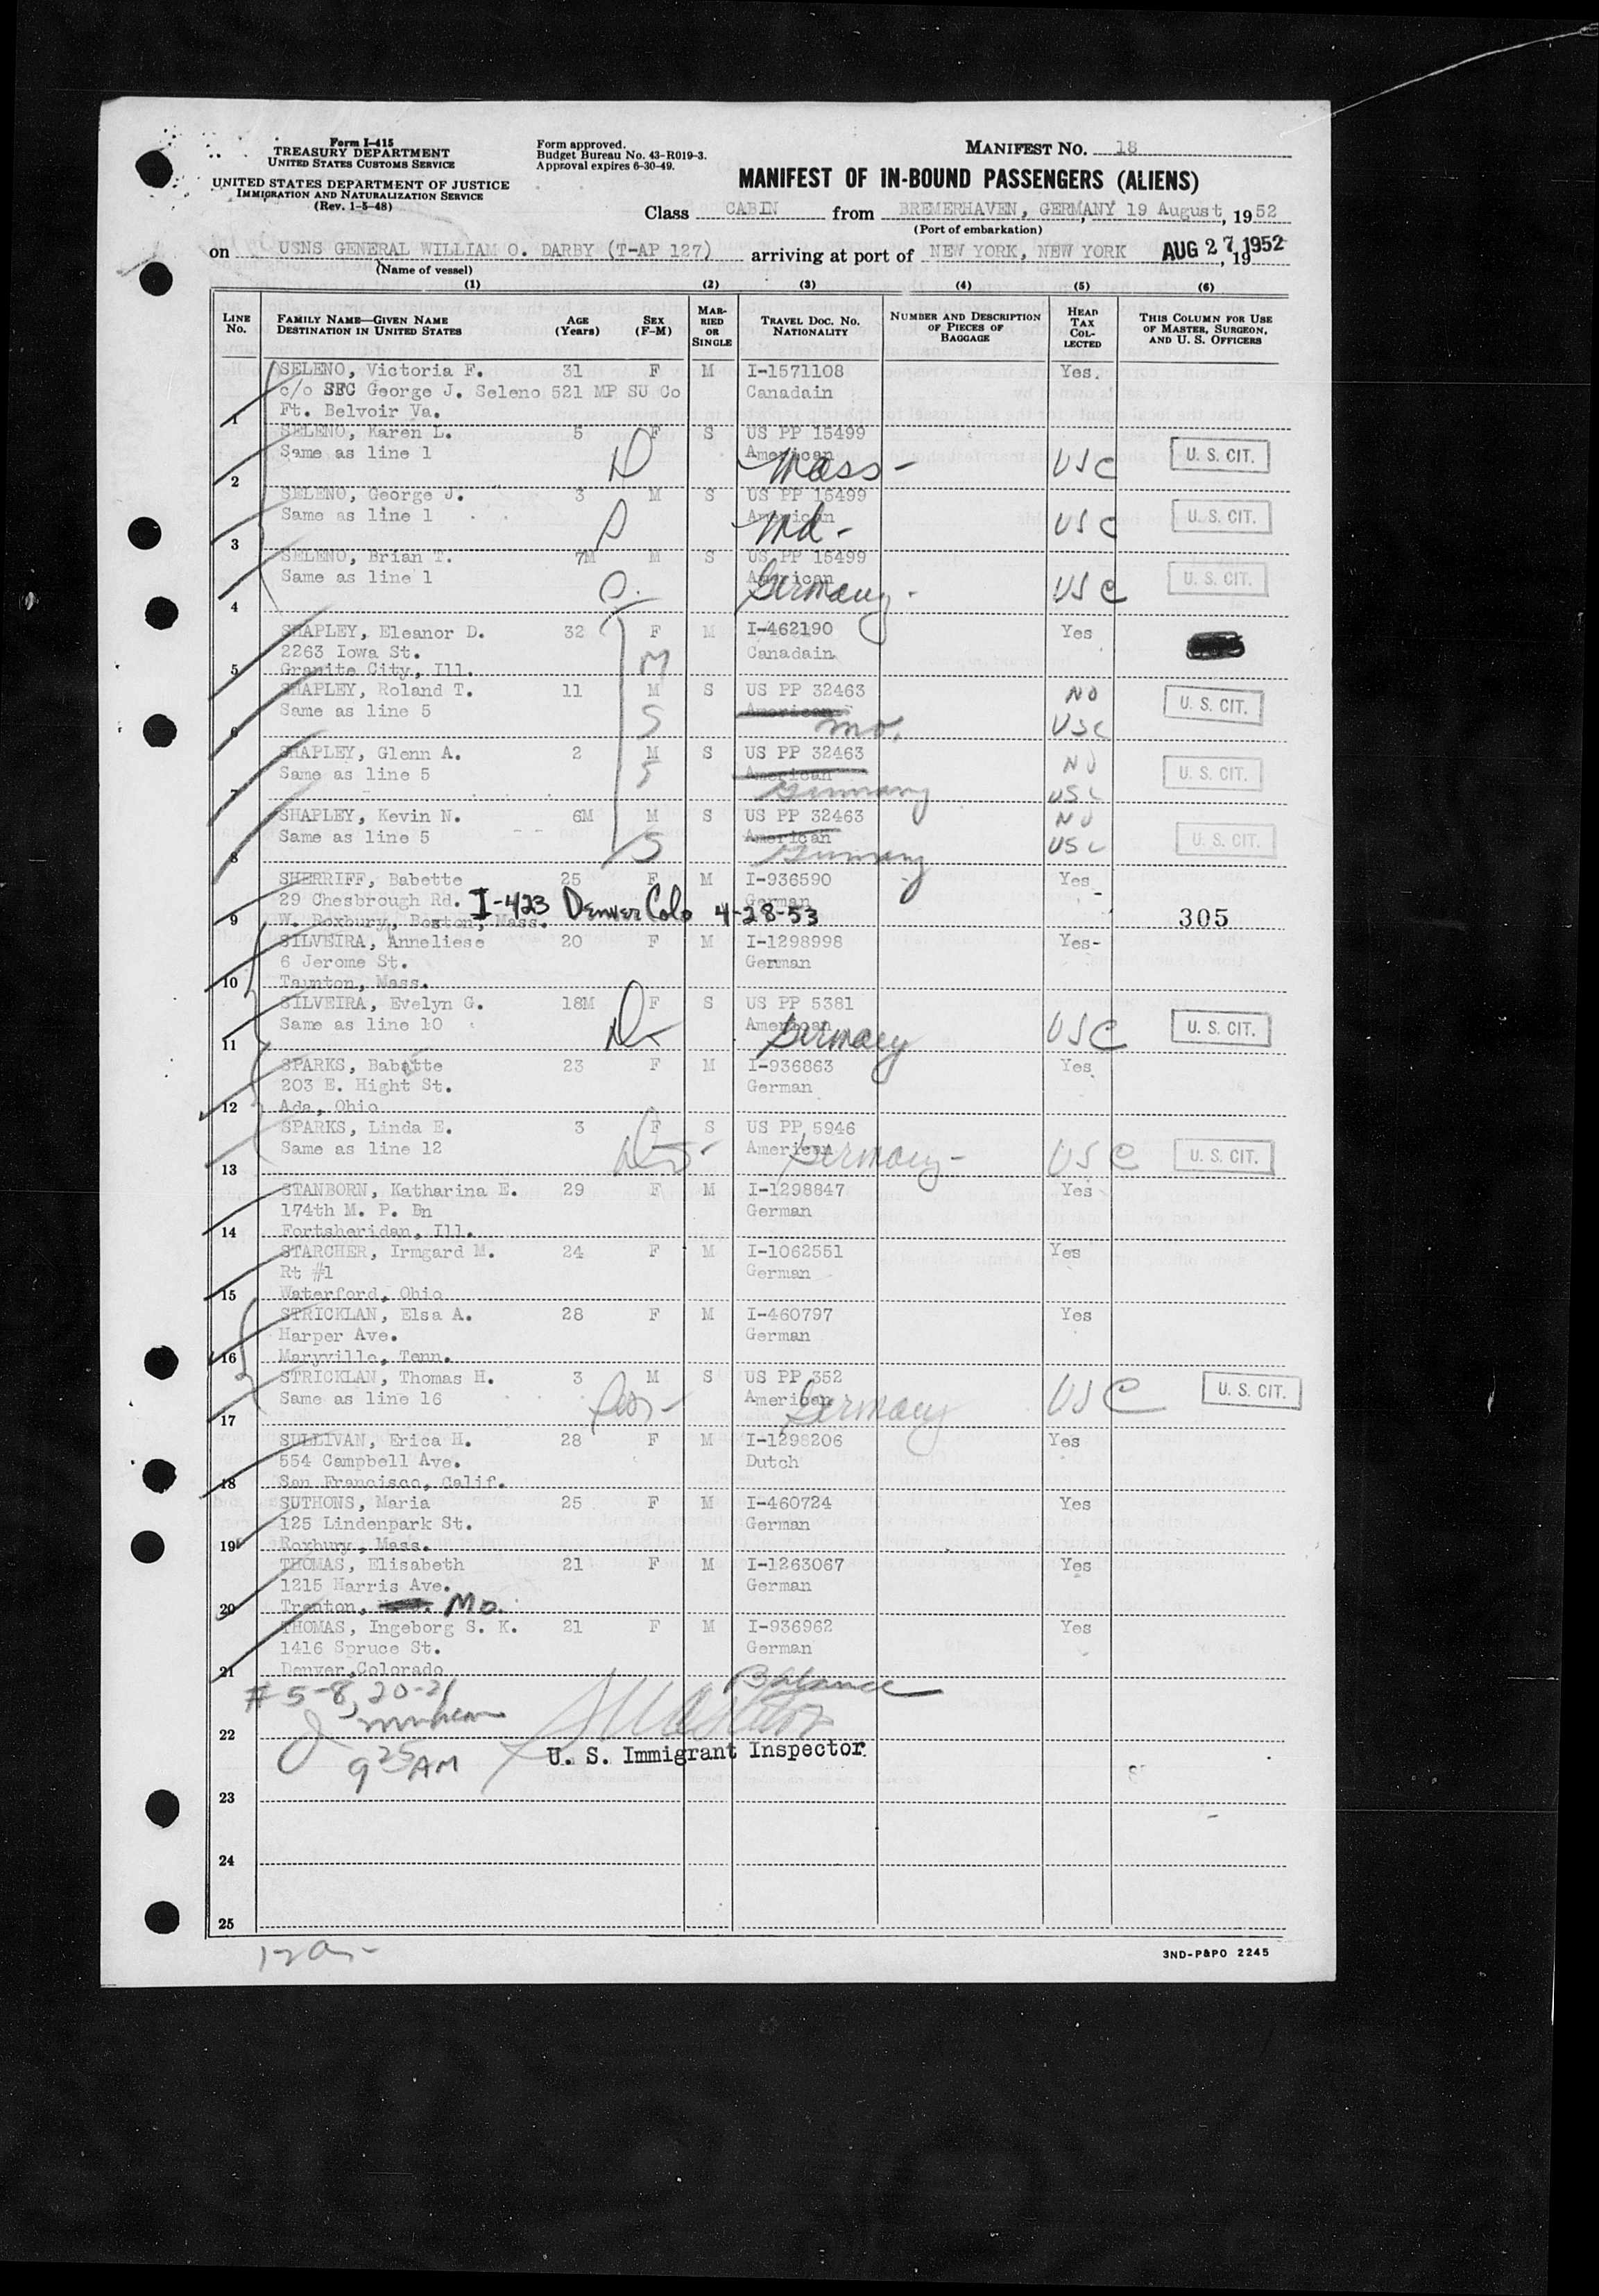 Form I-415
TREASURY DEPARTMENT
UNITED STATES CUSTOMS SERVICE
UNITED STATES DEPARTMENT OF JUSTICE
IMMIGRATION AND NATURALIZATION SERVICE
(Rev. 1-5-48)
Form approved.
Budget Bureau No. 43-R019-3.
Approval expires 6-30-49.
MANIFEST NO. 18
MANIFEST OF IN-BOUND PASSENGERS (ALIENS)
Class CABIN from BREMERHAVEN, GERMANY 19 August, 1952
(Port of embarkation)
on USNS GENERAL WILLIAM O. DARBY (T-AP 127) arriving at port of NEW YORK, NEW YORK AUG 27 1952, 19
(Name of vessel)
(1) (2) (3) (4) (5) (6)
LINE No. FAMILY NAME—GIVEN NAME DESTINATION IN UNITED STATES AGE (Years) SEX (F-M) MARRIED OR SINGLE TRAVEL DOC. NO. NATIONALITY NUMBER AND DESCRIPTION OF PIECES OF BAGGAGE HEAD TAX COLLECTED THIS COLUMN FOR USE OF MASTER, SURGEON, AND U. S. OFFICERS
SELENO, Victoria F. 31 F M I-1571108 Yes.
c/o SFC George J. Seleno 521 MP SU Co Canadain
1 Ft. Belvoir Va.
SELENO, Karen L. 5 F S US PP 15499
Same as line 1 D American Mass- USC U. S. CIT.
2
SELENO, George J. 3 M S US PP 15499
Same as line 1 American Md- USC U. S. CIT.
3
SELENO, Brian T. 7M M S US PP 15499
Same as line 1 American Germany- USC U. S. CIT.
4
SHAPLEY, Eleanor D. 32 F M I-462190 Yes
2263 Iowa St. M Canadain
5 Granite City, Ill.
SHAPLEY, Roland T. 11 M S US PP 32463 NO
Same as line 5 S American Mo. USC U. S. CIT.
6
SHAPLEY, Glenn A. 2 M S US PP 32463 NO
Same as line 5 S American Germany USC U. S. CIT.
7
SHAPLEY, Kevin N. 6M M S US PP 32463 NO
Same as line 5 S American Germany USC U. S. CIT.
8
SHERRIFF, Babette 25 F M I-936590 Yes
29 Chesbrough Rd. I-423 Denver Colo 4-28-53 German
9 W. Roxbury, Boston, Mass. 305
SILVEIRA, Anneliese 20 F M I-1298998 Yes-
6 Jerome St. German
10 Taunton, Mass.
SILVEIRA, Evelyn G. 18M F S US PP 5381
Same as line 10 American Germany USC U. S. CIT.
11
SPARKS, Babette 23 F M I-936863 Yes
203 E. Hight St. German
12 Ada, Ohio
SPARKS, Linda E. 3 F S US PP 5946
Same as line 12 American Germany- USC U. S. CIT.
13
STANBORN, Katharina E. 29 F M I-1298847 Yes
174th M. P. Bn German
14 Fortsheridan, Ill.
STARCHER, Irmgard M. 24 F M I-1062551 Yes
Rt #1 German
15 Waterford, Ohio
STRICKLAN, Elsa A. 28 F M I-460797 Yes
Harper Ave. German
16 Maryville, Tenn.
STRICKLAN, Thomas H. 3 M S US PP 352
Same as line 16 American Germany USC U. S. CIT.
17
SULLIVAN, Erica H. 28 F M I-1298206 Yes
554 Campbell Ave. Dutch
18 San Francisco, Calif.
SUTHONS, Maria 25 F M I-460724 Yes
125 Lindenpark St. German
19 Roxbury, Mass.
THOMAS, Elisabeth 21 F M I-1263067 Yes
1215 Harris Ave. German
20 Trenton, Mo.
THOMAS, Ingeborg S. K. 21 F M I-936962 Yes
1416 Spruce St. German
21 Denver, Colorado
# 5-8, 20-21 Balance
22
9 25 AM U. S. Immigrant Inspector
23
24
25
3ND-P&PO 2245